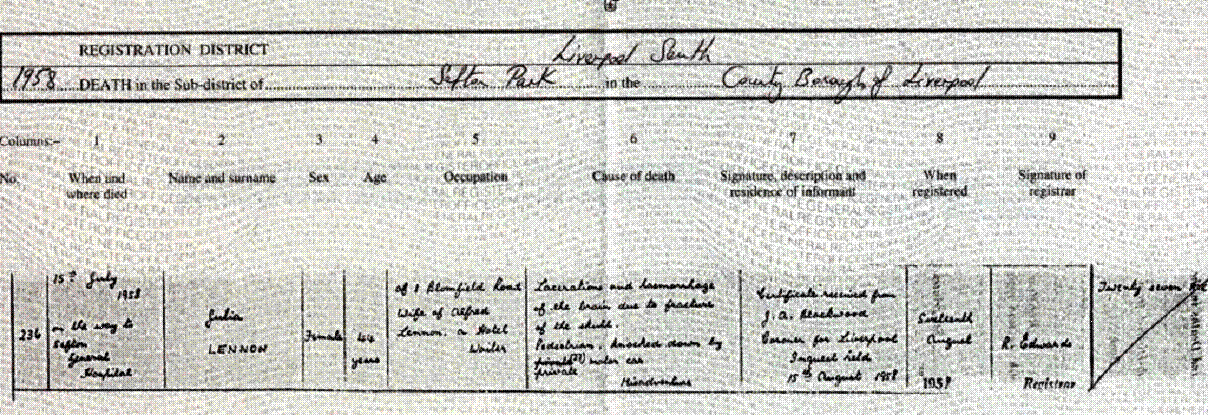 REGISTRATION DISTRICT Liverpool South
1958 DEATH in the Sub-district of Sefton Park in the County Borough of Liverpool
Columns:- 1 2 3 4 5 6 7 8 9
No. When and where died Name and surname Sex Age Occupation Cause of death Signature, description and residence of informant When registered Signature of registrar
236
15th July
1958
on the way to
Sefton
General
Hospital
Julia
LENNON
Female
44
years
of 1 Blomfield Road
Wife of Alfred
Lennon. a Hotel
Waiter
Lacerations and haemorrhage
of the brain due to fracture
of the skull.
Pedestrian, knocked down by
motor car
private
Misadventure
Certificate received from
J.A. Blackwood
Coroner for Liverpool
Inquest held
15th August 1958
Sixteenth
August
1958
R. Edwards
Registrar
Twenty seven